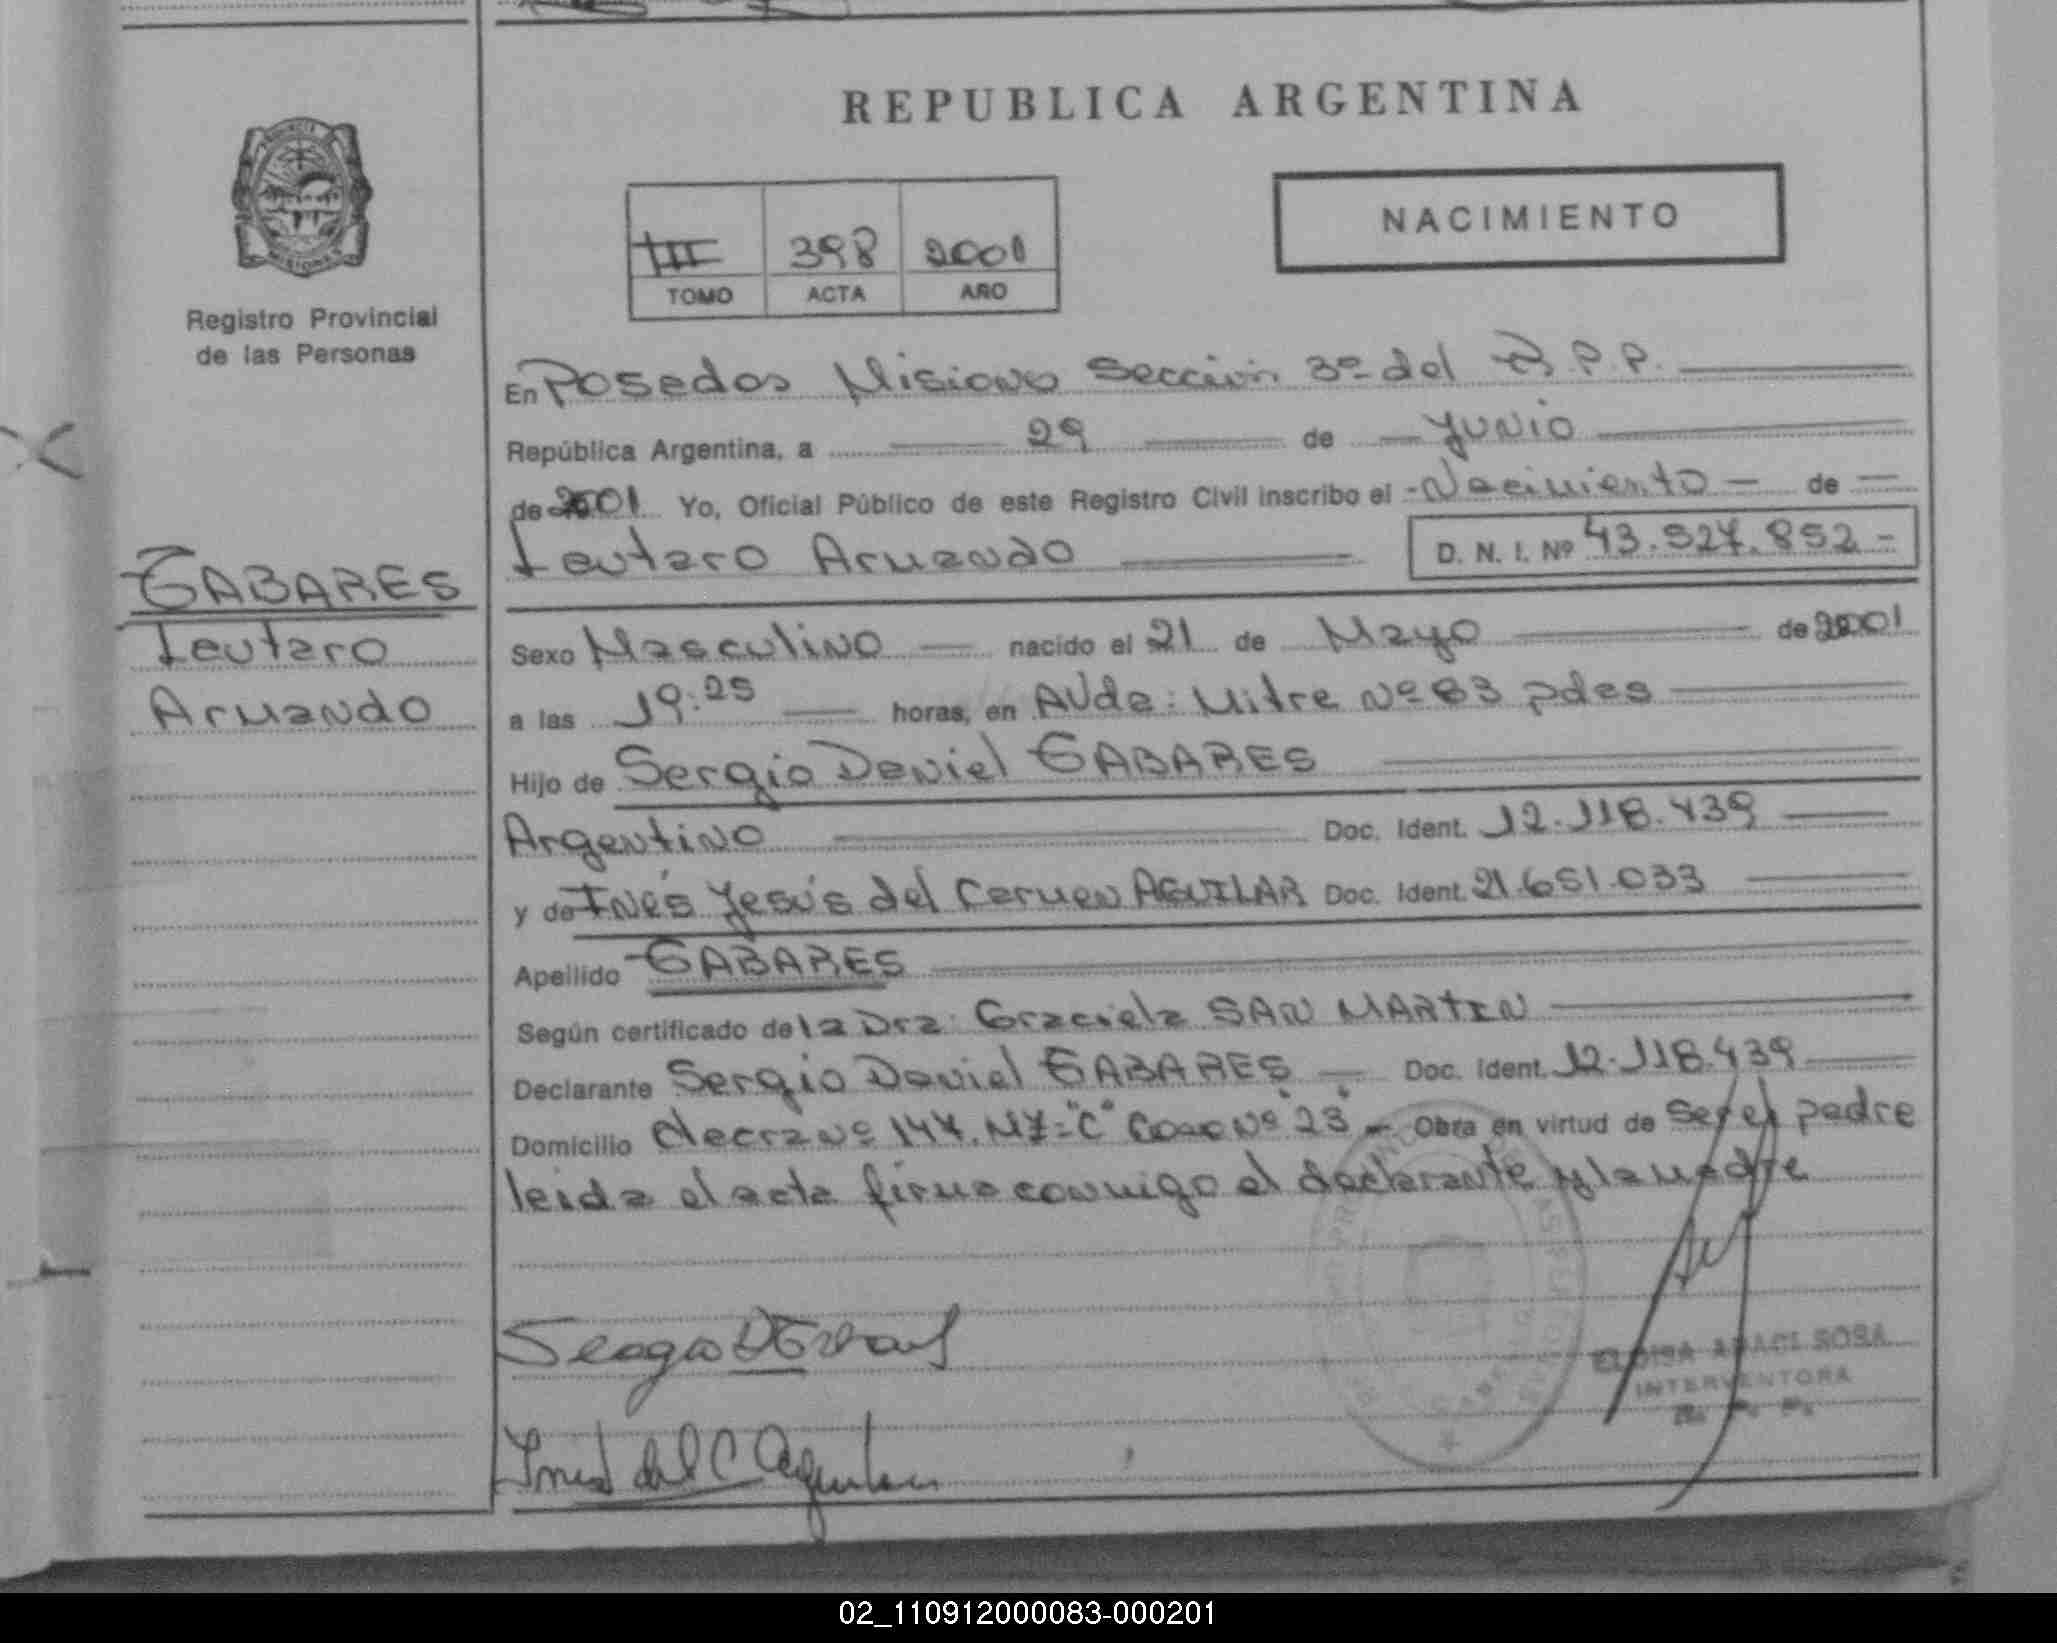 REPUBLICA ARGENTINA
NACIMIENTO
III 398 2001
TOMO ACTA AÑO
Registro Provincial
de las Personas
En Posadas Misiones Sección 3º del R.P.P.
República Argentina, a 29 de Junio
de 2001 Yo, Oficial Público de este Registro Civil inscribo el Nacimiento de
Lautaro Armando D. N. I. Nº 43.527.852-
GABARES
Lautaro
Armando
Sexo Masculino nacido el 21 de Mayo de 2001
a las 19:25 horas, en AVda: Mitre Nº 83 pdas
Hijo de Sergio Daniel GABARES
Argentino Doc. Ident. 12.118.439
y de Inés Jesús del Carmen AGUILAR Doc. Ident. 21.651.033
Apellido GABARES
Según certificado de la Dra. Graciela SAN MARTIN
Declarante Sergio Daniel GABARES Doc. Ident. 12.118.439
Domicilio Chacra Nº 147. MZ="C" Casa Nº "23" Obra en virtud de ser el padre
leida el acta firma conmigo el declarante y la madre
Sergio D
Ines del C Aguilar
ELOISA ARACI SOSA
INTERVENTORA
R. P. P.
02_110912000083-000201